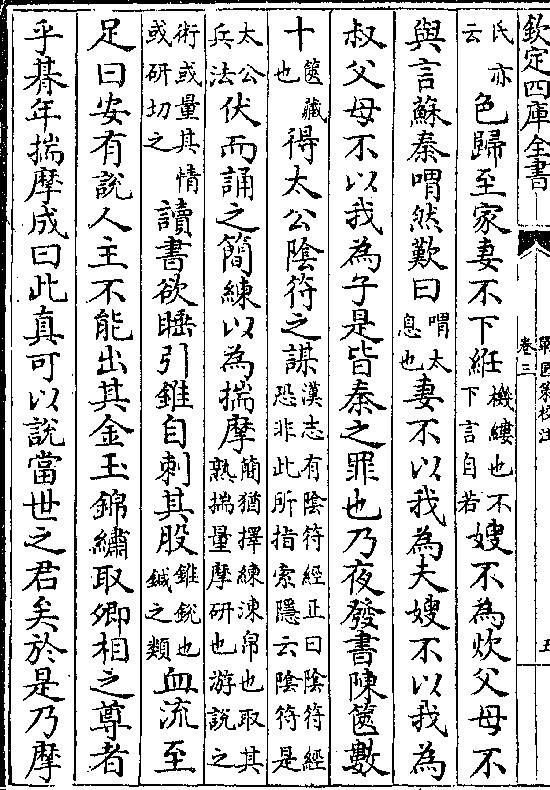 欽定四庫全書
戰國策校注
卷三
五
氏亦
云
色歸至家妻不下絍
機縷也不
下言自若
嫂不為炊父母不
與言蘇秦喟然歎曰
喟太
息也
妻不以我為夫嫂不以我為
叔父母不以我為子是皆秦之罪也乃夜發書陳篋數
十
篋藏
也
得太公陰符之謀
漢志有陰符經正曰陰符經
恐非此所指索隱云陰符是
太公
兵法
伏而誦之簡練以為揣摩
簡猶擇練湅帛也取其
熟揣量摩研也游說之
術或量其情
或研切之
讀書欲睡引錐自刺其股
錐銳也
鍼之類
血流至
足曰安有說人主不能出其金玉錦繡取卿相之尊者
乎朞年揣摩成曰此真可以說當世之君矣於是乃摩